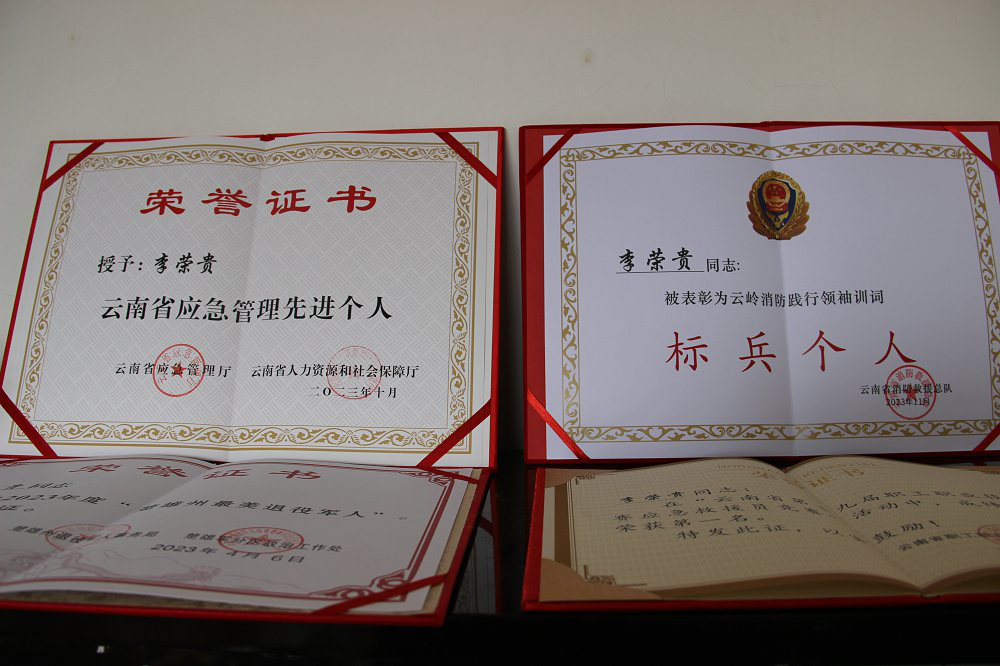 荣誉证书
授予：李荣贵
云南省应急管理先进个人
云南省应急管理厅 云南省人力资源和社会保障厅
二〇二三年十月
李荣贵 同志:
被表彰为云岭消防践行领袖训词
标兵个人
云南省消防救援总队
2023年11月
荣誉证书
同志
2023年度“楚雄州最美退役军人”。
证。
2023年4月6日
李荣贵同志：
在“云南省第 九届职工职业技
赛应急救援员竞赛 活动中，
荣获第一名。
特发此证，以 鼓励！
云南省职工